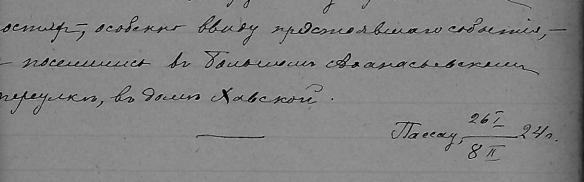 особенно ввиду предстоявшаго событія, —
— поселились въ Большомъ Аѳанасьевскомъ
переулкѣ, въ домѣ Хавской.
Пассау, 26 I / 8 II 24 г.